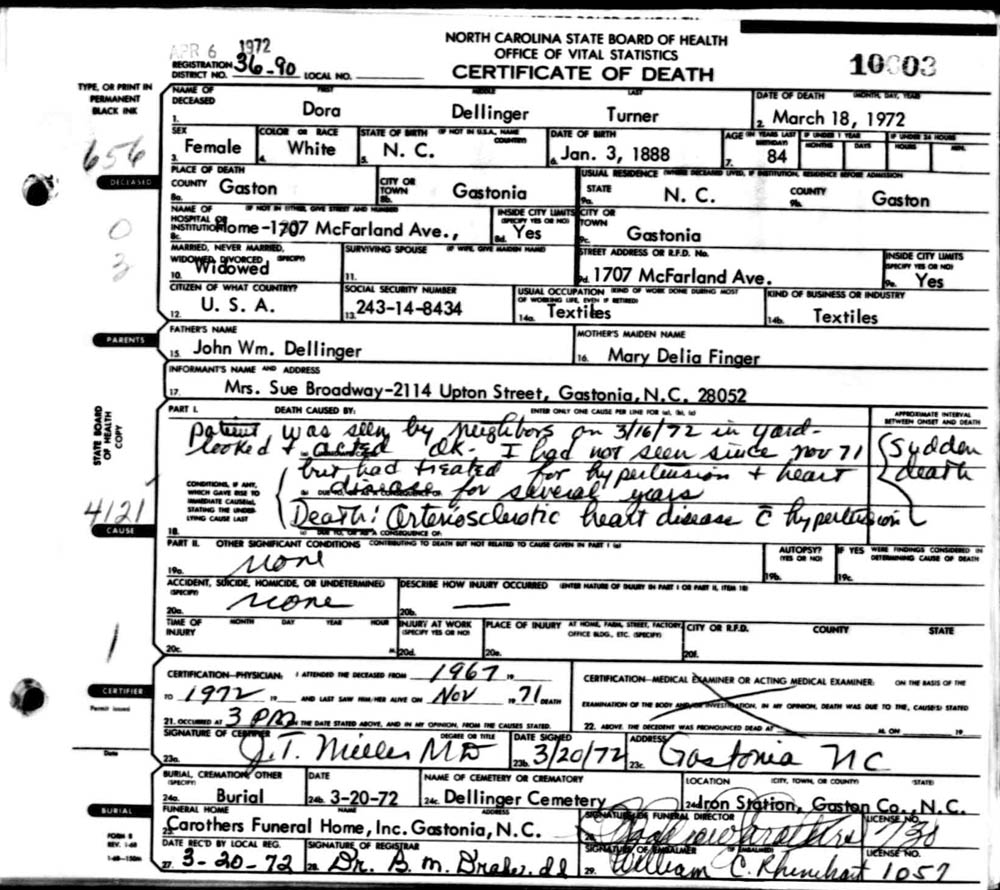 NORTH CAROLINA STATE BOARD OF HEALTH
OFFICE OF VITAL STATISTICS
CERTIFICATE OF DEATH
APR 6 1972
REGISTRATION DISTRICT NO. 36-90 LOCAL NO.
10603
TYPE, OR PRINT IN PERMANENT BLACK INK
NAME OF DECEASED FIRST MIDDLE LAST
1. Dora Dellinger Turner
DATE OF DEATH (MONTH, DAY, YEAR)
2. March 18, 1972
SEX 3. Female
COLOR OR RACE 4. White
STATE OF BIRTH (IF NOT IN U.S.A., NAME COUNTRY) 5. N. C.
DATE OF BIRTH 6. Jan. 3, 1888
AGE (IN YEARS LAST BIRTHDAY) 7. 84
IF UNDER 1 YEAR MONTHS DAYS
IF UNDER 24 HOURS HOURS MIN.
656
DECEASED
PLACE OF DEATH
COUNTY 8a. Gaston
CITY OR TOWN 8b. Gastonia
USUAL RESIDENCE (WHERE DECEASED LIVED, IF INSTITUTION, RESIDENCE BEFORE ADMISSION)
STATE 9a. N. C.
COUNTY 9b. Gaston
0
3
NAME OF HOSPITAL OR INSTITUTION (IF NOT IN EITHER, GIVE STREET AND NUMBER) 8c. Home-1707 McFarland Ave.,
INSIDE CITY LIMITS (SPECIFY YES OR NO) 8d. Yes
CITY OR TOWN 9c. Gastonia
MARRIED, NEVER MARRIED, WIDOWED, DIVORCED (SPECIFY) 10. Widowed
SURVIVING SPOUSE (IF WIFE, GIVE MAIDEN NAME) 11.
STREET ADDRESS OR R.F.D. No. 9d. 1707 McFarland Ave.
INSIDE CITY LIMITS (SPECIFY YES OR NO) 9e. Yes
CITIZEN OF WHAT COUNTRY? 12. U. S. A.
SOCIAL SECURITY NUMBER 13. 243-14-8434
USUAL OCCUPATION (KIND OF WORK DONE DURING MOST OF WORKING LIFE, EVEN IF RETIRED) 14a. Textiles
KIND OF BUSINESS OR INDUSTRY 14b. Textiles
PARENTS
FATHER'S NAME 15. John Wm. Dellinger
MOTHER'S MAIDEN NAME 16. Mary Delia Finger
INFORMANT'S NAME AND ADDRESS
17. Mrs. Sue Broadway-2114 Upton Street, Gastonia, N.C. 28052
STATE BOARD OF HEALTH COPY
PART I. DEATH CAUSED BY: ENTER ONLY ONE CAUSE PER LINE FOR (a), (b), (c)
APPROXIMATE INTERVAL BETWEEN ONSET AND DEATH
Patient was seen by neighbors on 3/16/72 in yard-
looked & acted OK. I had not seen since Nov 71
but had treated for hypertension & heart
disease for several years
Death: Arteriosclerotic heart disease c̄ hypertension
Sudden death
CONDITIONS, IF ANY, WHICH GAVE RISE TO IMMEDIATE CAUSE(a), STATING THE UNDERLYING CAUSE LAST
(b) DUE TO, OR AS A CONSEQUENCE OF:
(c) DUE TO, OR AS A CONSEQUENCE OF:
18.
4121
CAUSE
PART II. OTHER SIGNIFICANT CONDITIONS CONTRIBUTING TO DEATH BUT NOT RELATED TO CAUSE GIVEN IN PART I (a)
19a. None
AUTOPSY? (YES OR NO) 19b.
IF YES WERE FINDINGS CONSIDERED IN DETERMINING CAUSE OF DEATH 19c.
ACCIDENT, SUICIDE, HOMICIDE, OR UNDETERMINED (SPECIFY) 20a. None
DESCRIBE HOW INJURY OCCURRED (ENTER NATURE OF INJURY IN PART I OR PART II, ITEM 18) 20b. —
TIME OF INJURY MONTH DAY YEAR HOUR 20c. M.
INJURY AT WORK (SPECIFY YES OR NO) 20d.
PLACE OF INJURY AT HOME, FARM, STREET, FACTORY, OFFICE BLDG., ETC. (SPECIFY) 20e.
CITY OR R.F.D. COUNTY STATE 20f.
1
CERTIFIER
Permit Issued
Date
CERTIFICATION-PHYSICIAN: I ATTENDED THE DECEASED FROM 1967 19
TO 1972 19 AND LAST SAW HIM/HER ALIVE ON Nov 1971 DEATH
21. OCCURRED AT 3 PM ON THE DATE STATED ABOVE, AND IN MY OPINION, FROM THE CAUSES STATED.
CERTIFICATION-MEDICAL EXAMINER OR ACTING MEDICAL EXAMINER: ON THE BASIS OF THE
EXAMINATION OF THE BODY AND/OR INVESTIGATION, IN MY OPINION, DEATH WAS DUE TO THE, CAUSE(S) STATED
22. ABOVE. THE DECEDENT WAS PRONOUNCED DEAD AT M. ON 19
SIGNATURE OF CERTIFIER DEGREE OR TITLE 23a. J. T. Miller MD
DATE SIGNED 23b. 3/20/72
ADDRESS 23c. Gastonia NC
BURIAL, CREMATION, OTHER (SPECIFY) 24a. Burial
DATE 24b. 3-20-72
NAME OF CEMETERY OR CREMATORY 24c. Dellinger Cemetery
LOCATION (CITY, TOWN, OR COUNTY) (STATE) 24d. Iron Station, Gaston Co., N.C.
BURIAL
FORM 8
REV. 1-68
1-68-150M
FUNERAL HOME NAME ADDRESS
25. Carothers Funeral Home, Inc. Gastonia, N.C.
SIGNATURE OF FUNERAL DIRECTOR Carothers
LICENSE NO. 730
DATE REC'D BY LOCAL REG. 27. 3-20-72
SIGNATURE OF REGISTRAR 28. Dr. B. M. Drake
SIGNATURE OF EMBALMER (IF EMBALMED) 29. William C. Rhinehart
LICENSE NO. 1057